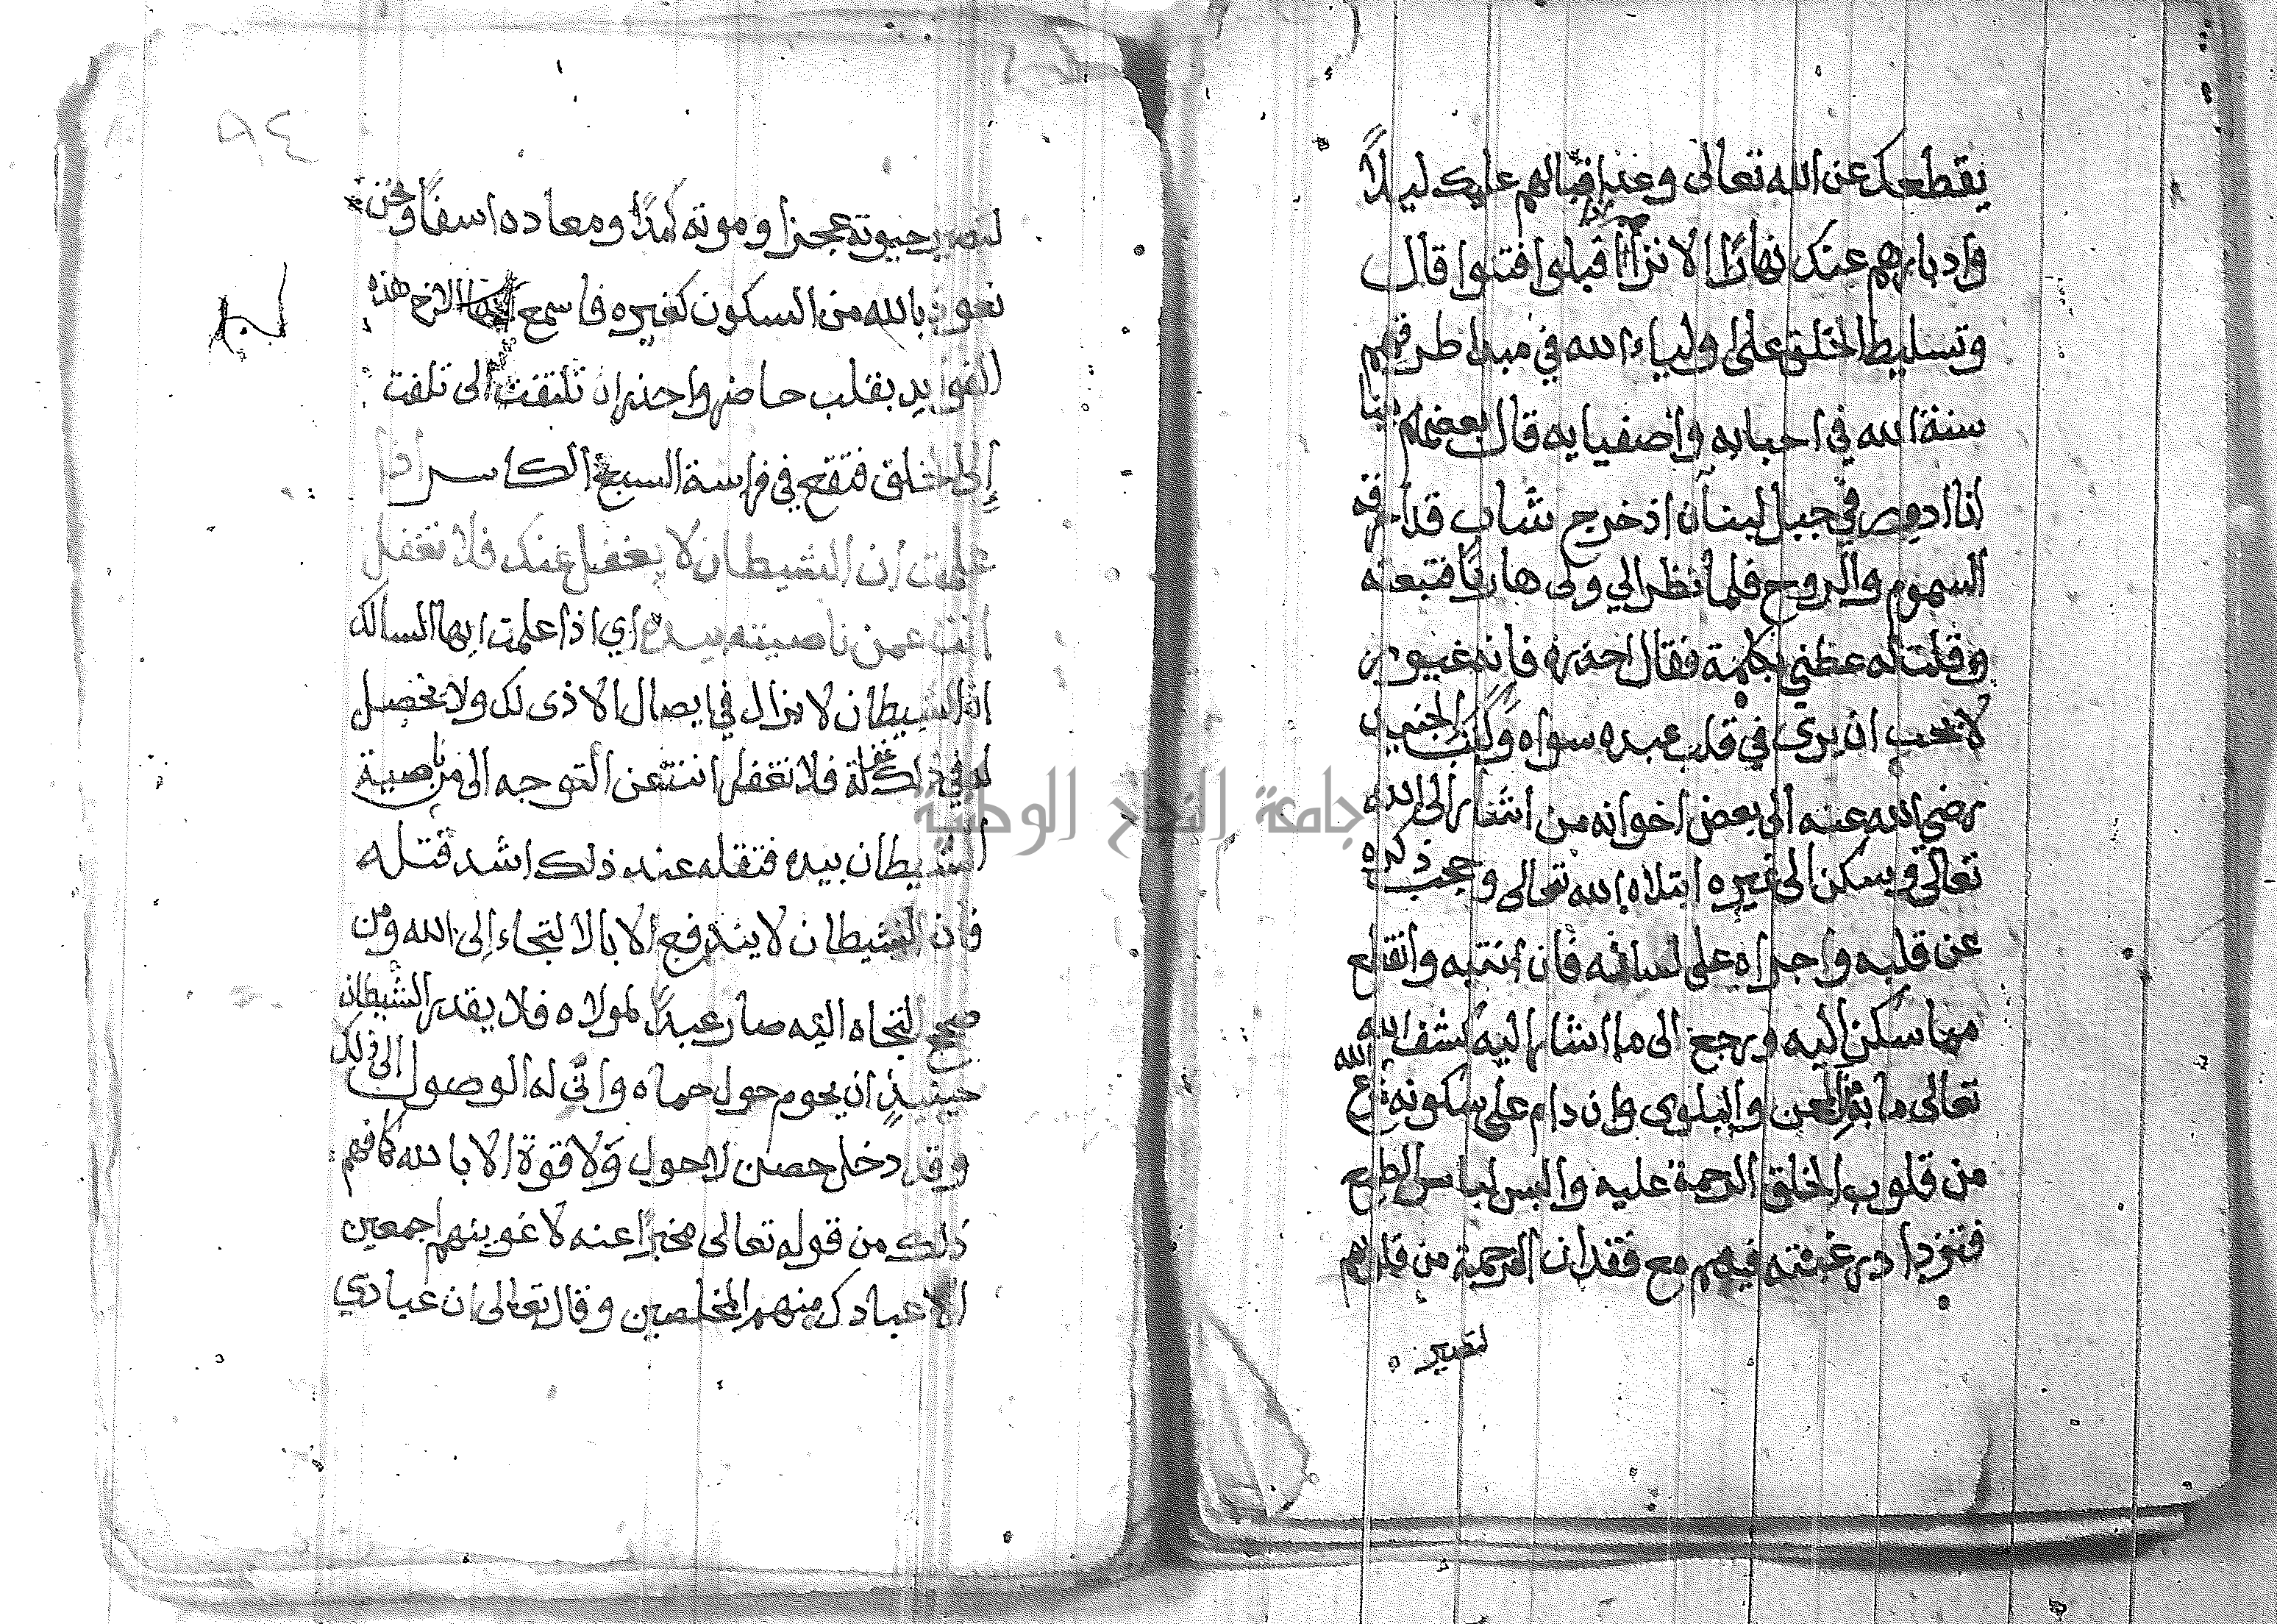 يقطعك عن الله تعالى وعند اقبالهم عليك ليلاً
وادبارهم عنك نهارًا الا تراا قبلوا فتنوا قال
وتسليط الخلق على اولياء الله في مبدا طرقهم
سنة الله في احبابه واصفيايه قال بعضهم بينا
انا ادور في جبل لبنان اذ خرج شاب قد احرقه
السموم والروح فلما نظر الي ولى هاربًا فتبعته
وقلت له عظني بكلمة فقال احذره فانه غيور
لا يحب ان يرى في قلب عبده سواه وكتب الجنيد
رضي الله عنه الى بعض اخوانه من اشار الى الله
تعالى وسكن الى غيره ابتلاه الله تعالى وحجب ذكره
عن قلبه واجراه على لسانه فان انتبه وانقطع
مما سكن اليه ورجع الى ما اشار اليه كشف الله
تعالى ما به من المحن والبلوى وان دام على سكونه نزع الله
من قلوب الخلق الرحمة عليه والبس لباس الطمع
فتزداد رغبته فيهم مع فقدان الرحمة من قلوبهم
لتصير
لتصير حيوته عجزا وموته كمدًا ومعاده اسفًا ونحن
نعوذ بالله من السكون لغيره فاسمع الاخ هذه
الفوايد بقلب حاضر واحذر ان تلتفت الى تلفت
إلى الخلق فتقع في فراسة السبع الكاسر اذا
علمت ان الشيطان لا يغفل عنك فلا تغفل
انت عمن ناصيته بيده اي اذا علمت ايها السالك
ان الشيطان لا يزال في ايصال الاذى لك ولا يحصل
له في ذلك غفلة فلا تغفل انت عن التوجه الى من ناصية
الشيطان بيده فتقله عند ذلك اشد قتله
فان الشيطان لا يندفع الا بالالتجاء إلى الله ومن
صح التجاه اليه صار عبدًا لمولاه فلا يقدر الشيطان
حينيذٍ ان يحوم حول حماه وانى له الوصول الى ذلك
وقد دخل حصن لا حول ولا قوة الا بالله كما فهم
ذلك من قوله تعالى مخبرًا عنه لاغوينهم اجمعين
الا عبادك منهم المخلصين وقال تعالى ان عبادي
جامعة النجاح الوطنية